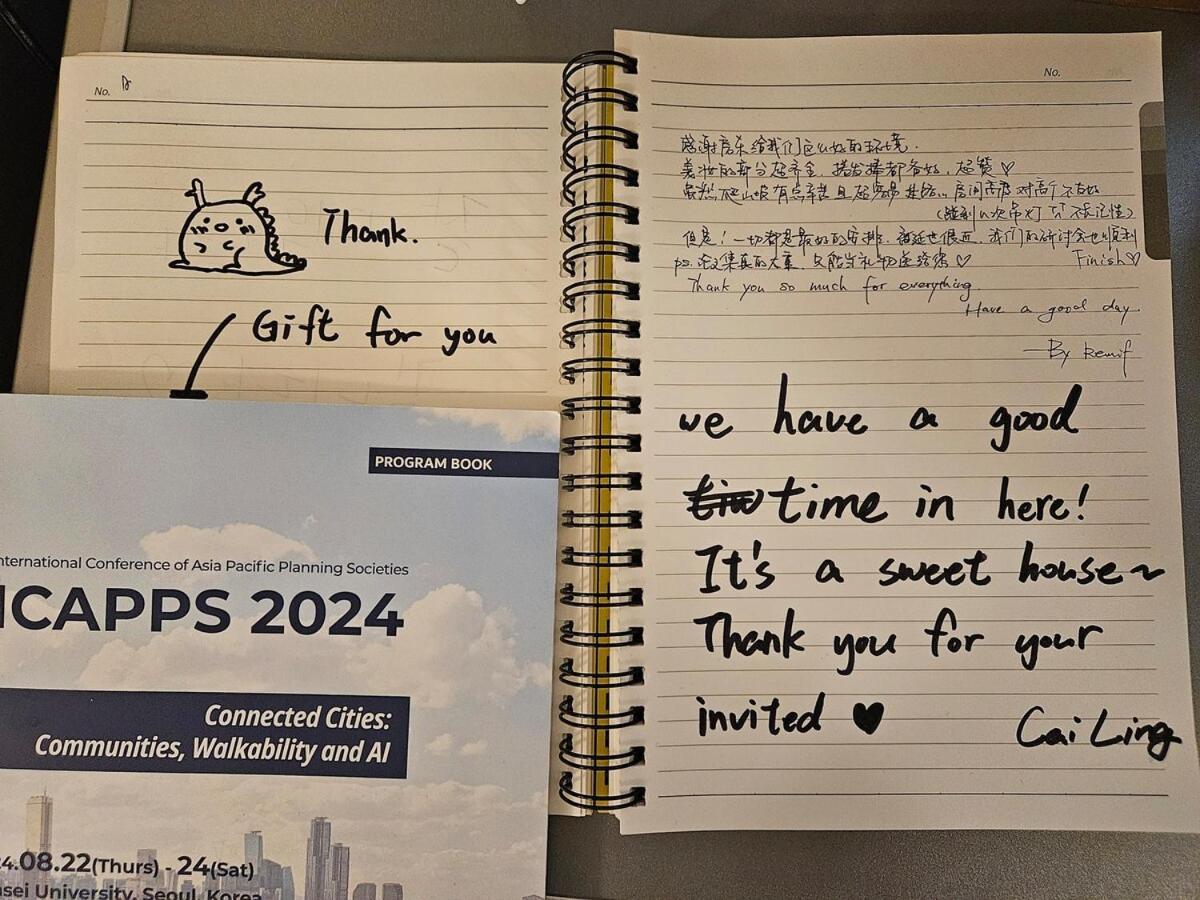 No.
Thank.
Gift for you
PROGRAM BOOK
nternational Conference of Asia Pacific Planning Societies
ICAPPS 2024
Connected Cities:
Communities, Walkability and AI
24.08.22(Thurs) - 24(Sat)
nsei University, Seoul, Korea
No.
感謝房東給我們這么好的環境.
美妝的部分超齊全, 捲髮棒都备好, 超贊♡
雖然爬山坡有點辛苦且超容易 房间高度對高个不友好
(碰到n次吊灯 不長记性)
但是!一切都是最好的安排, 我們的研讨会也順利
Finish♡
ps. 論文集真的太重, 只能当礼物送给您♡
Thank you so much for everything.
Have a good day.
—By
we have a good
time in here!
It's a sweet house~
Thank you for your
invited ♥
Cai Ling